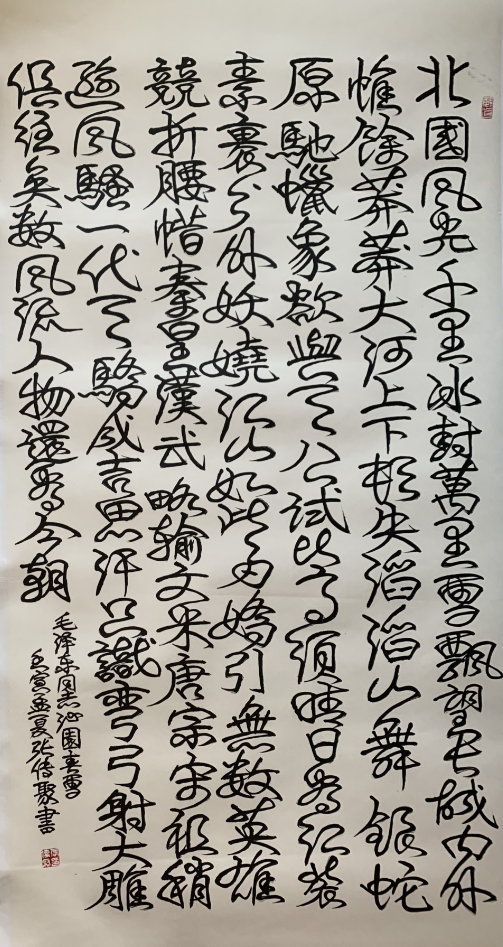 北國風光千里冰封萬里雪飄望長城内外
惟餘莽莽大河上下頓失滔滔山舞銀蛇
原馳蠟象欲與天公試比高須晴日看红裝
素裹分外妖嬈江山如此多嬌引無數英雄
競折腰惜秦皇漢武略输文采唐宗宋祖稍
遜風騷一代天驕成吉思汗只識彎弓射大雕
俱往矣数風流人物還看今朝
毛泽东同志沁園春雪
壬寅孟夏张传聚書